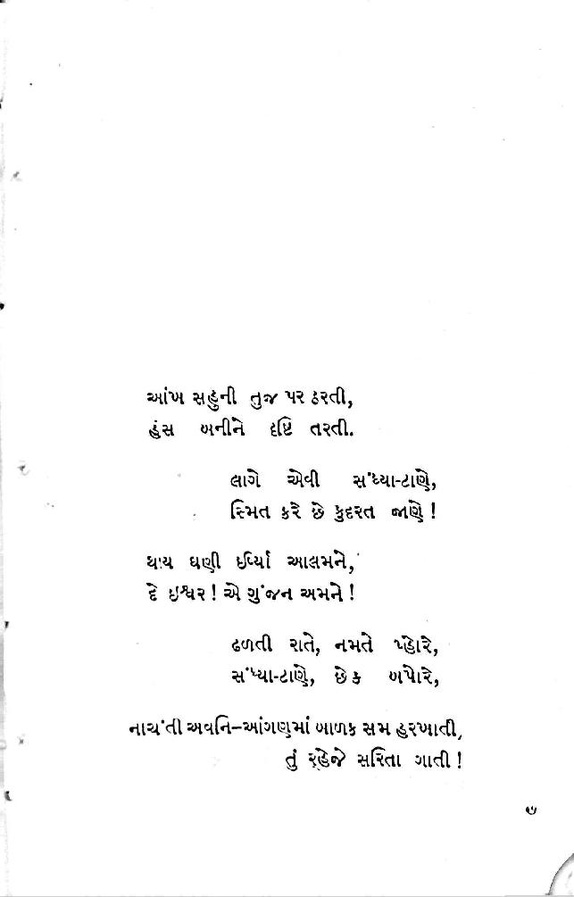 આંખ સહુની તુજ પર ઠરતી,
હંસ બનીને દૃષ્ટિ તરતી.
લાગે એવી સંધ્યા-ટાણે,
સ્મિત કરે છે કુદરત જાણે !
થાય ઘણી ઈર્ષ્યા આલમને,
દે ઇશ્વર ! એ ગુંજન અમને !
ઢળતી રાતે, નમતે પ્હોરે,
સંધ્યા-ટાણે, છેક બપોરે,
નાચંતી અવનિ-આંગણમાં બાળક સમ હરખાતી,
તું ર્‌હેજે સરિતા ગાતી !
૭